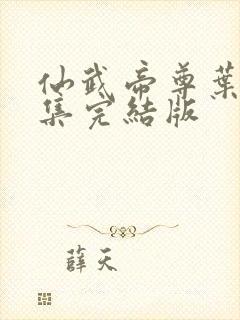 仙武帝尊葉
集完結版
薛天